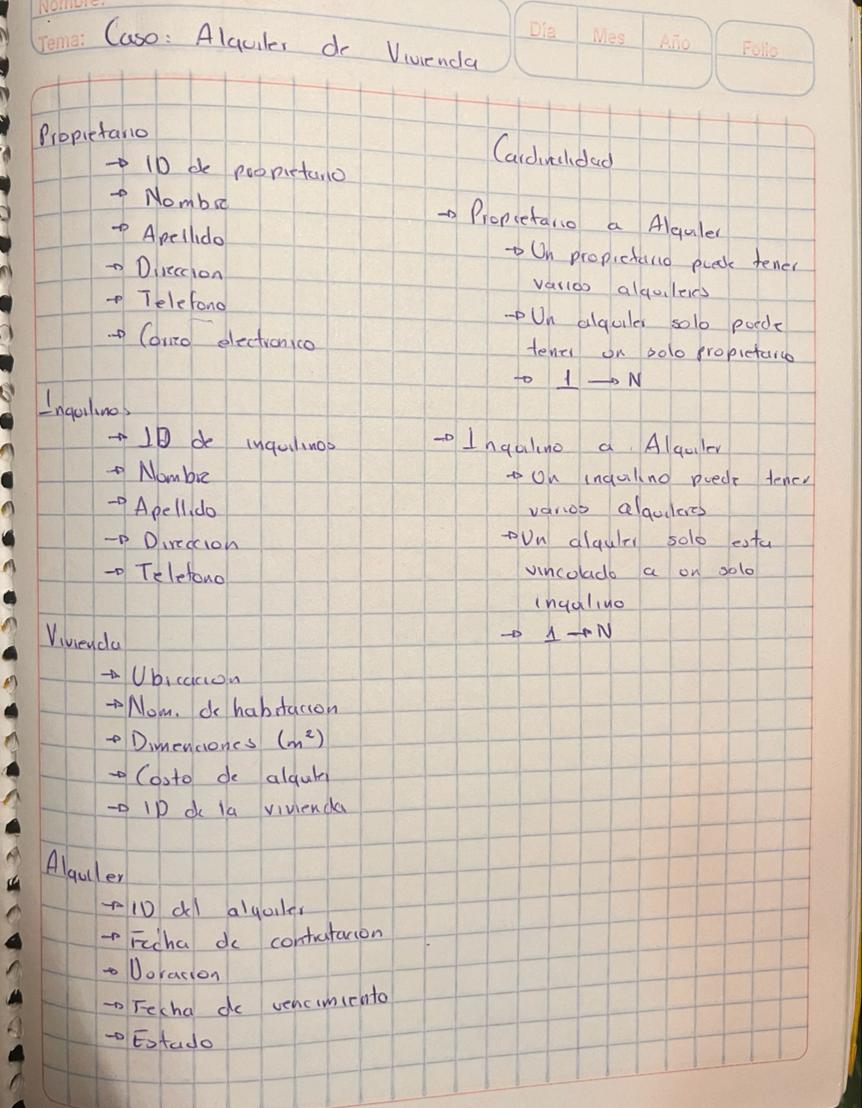 Nombre:
Tema: Caso: Alquiler de Vivienda
Día
Mes
Año
Folio
Propietario
→ ID de propietario
→ Nombre
→ Apellido
→ Direccion
→ Telefono
→ Correo electronico
Inquilinos
→ ID de inquilinos
→ Nombre
→ Apellido
→ Direccion
→ Telefono
Vivienda
→ Ubicacion
→ Nom. de habitacion
→ Dimenciones (m²)
→ Costo de alquiler
→ ID de la vivienda
Alquiler
→ ID del alquiler
→ Fecha de contratacion
→ Duracion
→ Fecha de vencimiento
→ Estado
Cardinalidad
→ Propietario a Alquiler
→ Un propietario puede tener
varios alquileres
→ Un alquiler solo puede
tener un solo propietario
→ 1 → N
→ Inquilino a Alquiler
→ Un inquilino puede tener
varios alquileres
→ Un alquiler solo esta
vinculado a un solo
inquilino
→ 1 → N